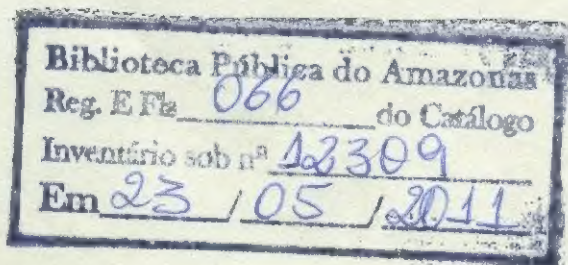 Biblioteca Pública do Amazonas
Reg. E Fls 066 do Catálogo
Inventário sob nº 12309
Em 23 / 05 / 2011